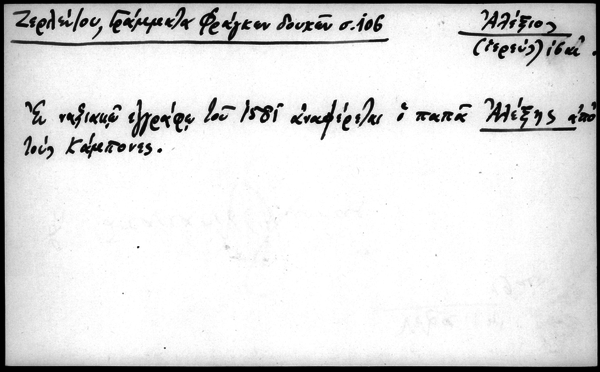 Ζερλέντου, Γράμματα Φράγκων δουκῶν σ. 106
Ἀλέξιος
(ἱερεύς) ις΄ αἰ.
Ἐν ναξιακῷ ἐγγράφῳ τοῦ 1581 ἀναφέρεται ὁ παπᾶ Ἀλέξης ἀπὸ
τοὺς Κάμπονες.